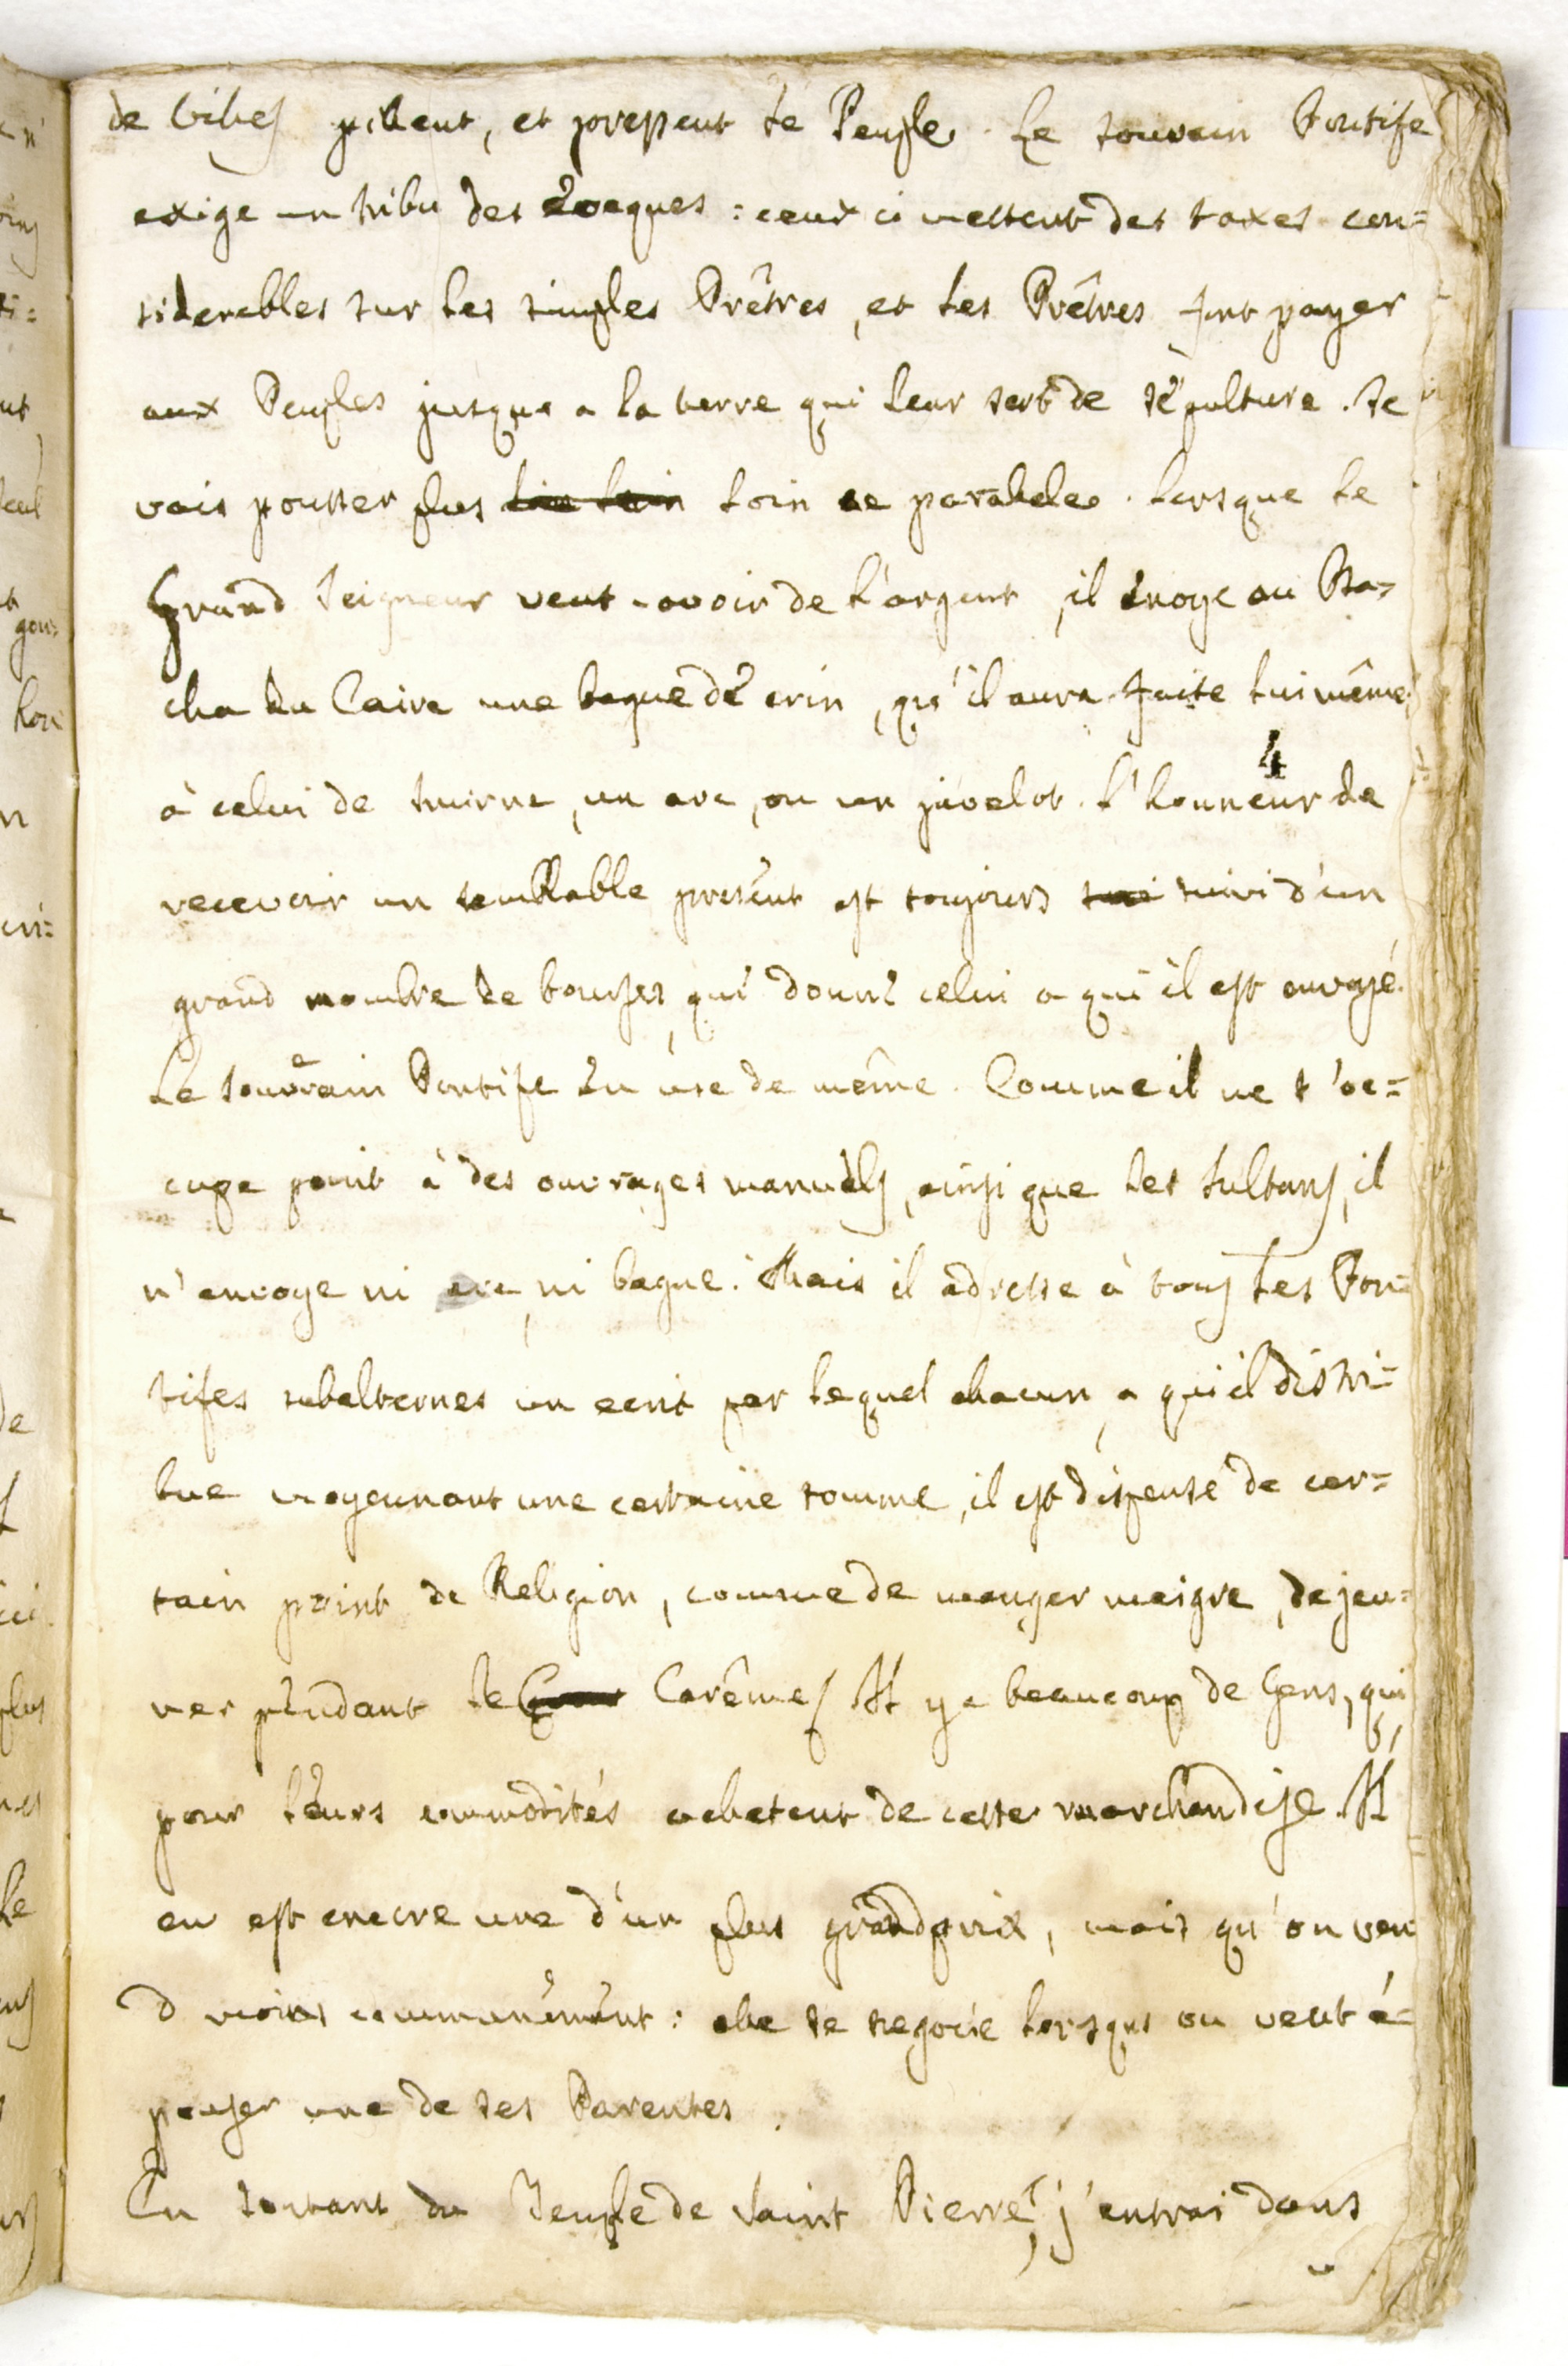 de villes pillent, et pressent le Peuple. Le souvrain Pontife
exige un tribu des Eveques : ceux ci mettent des taxes con=
siderables sur les simples Prêtres, et les Prêtres font payer
aux Peuples jusque a la terre qui leur sert de sépulture. Je
vais pousser plus loin ce paralele. Lorsque le
Grand Seigneur veut avoir de l'argent, il envoye au Ba=
cha du Caire une bague de crin, qu'il aura faite lui même,
à celui de Smirne, un arc, ou un javelot. L'honneur de
4
recevoir un semblable present est toujours suivi d'un
grand nombre de bourses, qui donne celui a qui il est envoyé.
Le souverain Pontife en use de même. Comme il ne s'oc=
cupe point à des ouvrages manuels, ainsi que les Sultans, il
n'envoye ni arc, ni bague. Mais il adresse à tous les Pon=
tifes subalternes un ecrit par lequel chacun, a qui il distri=
bue moyennant une certaine somme, il est dispensé de cer=
tain point de Religion, comme de manger maigre, de jeu=
ner pendant le Carêmes. Il y a beaucoup de Gens, qui,
pour leurs commodités achetent de cette marchandise. Il
en est encore une d'un plus grand prix, mais qu'on ven
d moins communément : elle se negocie lorsque on veut é=
pouser une de ses Parentes.
En sortant du Temple de Saint Pierre, j'entrai dans